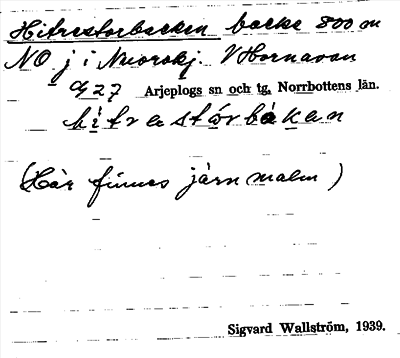 Hitrestorbacken backe 800 m
NO j i Njuorskj. V Hornavan
927 Arjeplogs sn och tg, Norrbottens län.
hitrestórbàkan
(Här finnes järnmalm)
Sigvard Wallström, 1939.